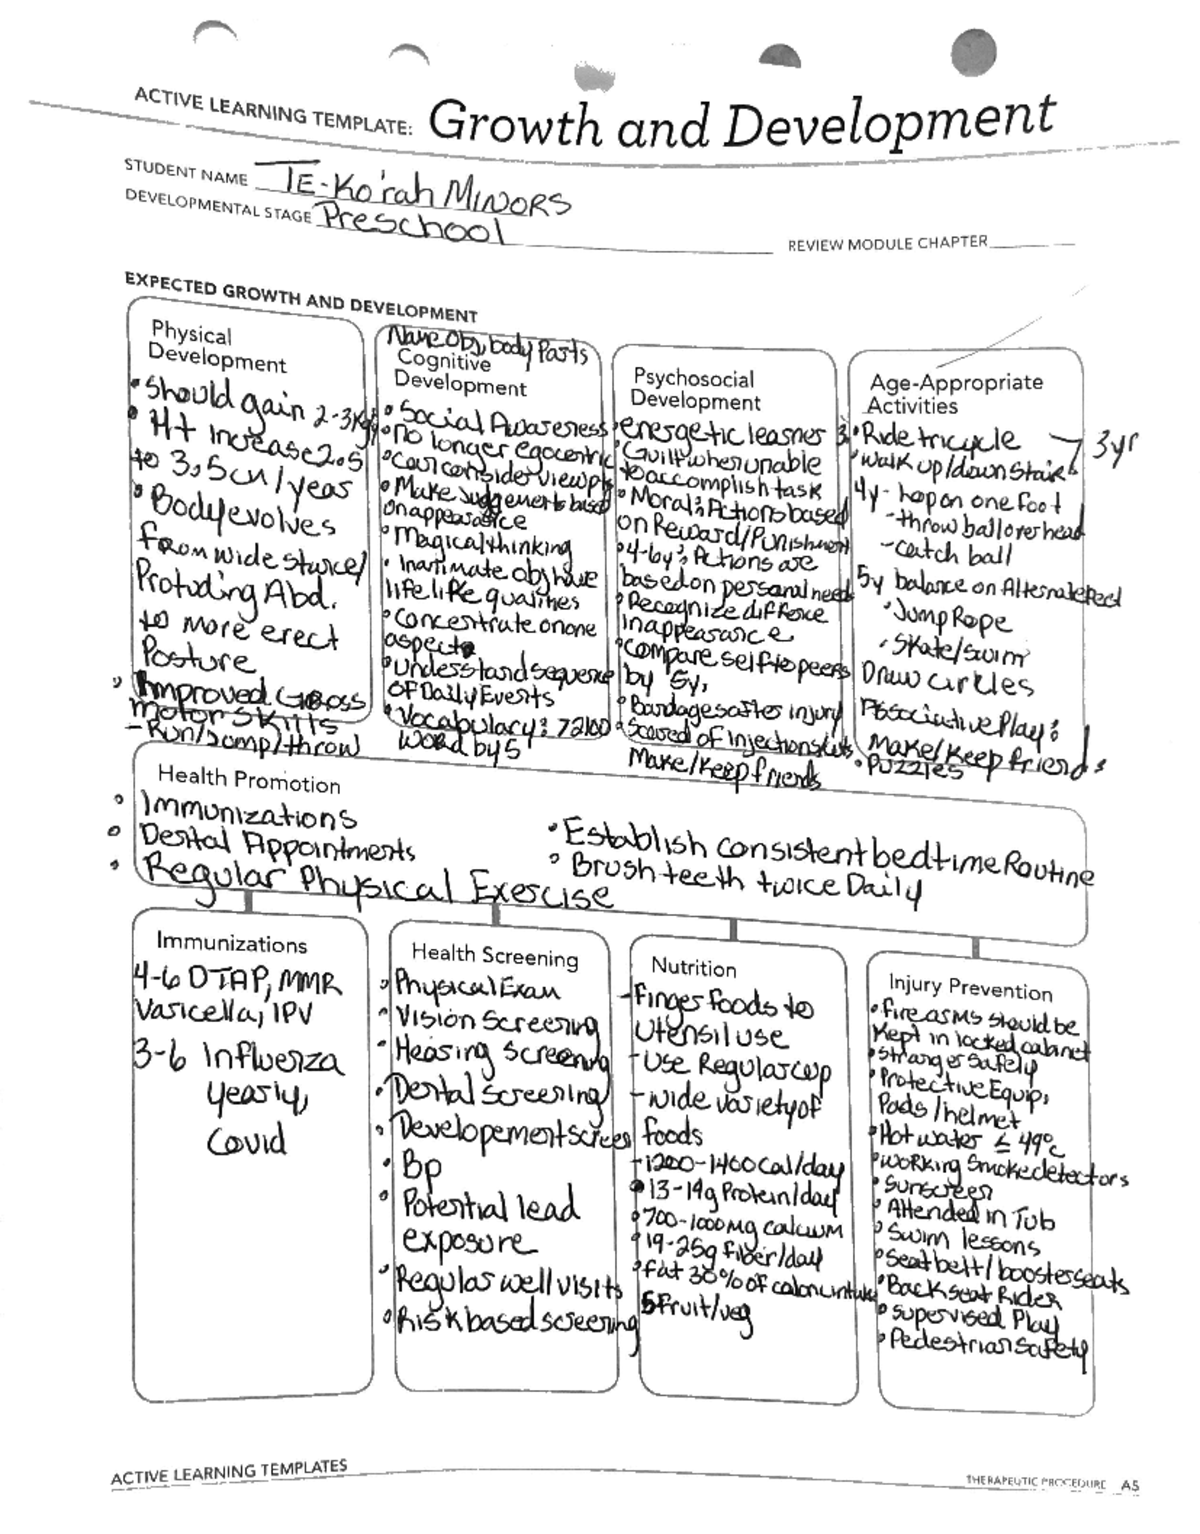 ACTIVE LEARNING TEMPLATE: Growth and Development
STUDENT NAME TE-Ko'rah MINORS
DEVELOPMENTAL STAGE Preschool
REVIEW MODULE CHAPTER
EXPECTED GROWTH AND DEVELOPMENT
Physical
Development
• Should gain 2-3kg/
• Ht increase 2.5
to 3.5cm/year
• Body evolves
from wide stance/
Protuding Abd.
to more erect
Posture
• Improved Gross
motor skills
- Run/Jump/throw
Name Obj, body Parts
Cognitive
Development
• Social Awareness
• no longer egocentric
• Can consider viewpts
• Make Judgements based
on appearance
• Magical thinking
• Inanimate obj have
life like qualities
• Concentrate on one
aspect
• Understand sequence
of Daily Events
• Vocabulary: 72100
word by 5
Psychosocial
Development
• energetic learner
• Guilt when unable
to accomplish task
• Moral: Actions based
on Reward/Punishment
• 4-6y: Actions are
based on personal need
• Recognize diffrence
in appearance
• Compare self to peers
by 5y,
• Bandages after injury
• Scared of Injections/cuts
Make/Keep friends
Age-Appropriate
Activities
3: • Ride tricycle
• walk up/down stairs
3yr
4y - hop on one foot
- throw ball overhead
- catch ball
5y balance on Alternate feet
• Jump Rope
• Skate/swim
Draw circles
Associative Play:
Make/Keep friends
• Puzzles
Health Promotion
• Immunizations
• Dental Appointments
• Regular Physical Exercise
• Establish consistent bedtime Routine
• Brush teeth twice Daily
Immunizations
4-6 DTAP, MMR
Varicella, IPV
3-6 Influenza
yearly,
Covid
Health Screening
• Physical Exam
• Vision Screening
• Hearing Screening
• Dental Screening
• Developement screen
• Bp
• Potential lead
exposure
• Regular well visits
• Risk based screening
Nutrition
- Finger foods to
Utensil use
- Use Regular cup
- wide variety of
foods
- 1200-1400 cal/day
• 13-19g Protein/day
• 700-1000 mg calcium
• 19-25g fiber/day
• fat 30% of caloric intake
5 Fruit/veg
Injury Prevention
• firearms should be
Kept in locked cabinet
• Stranger Safety
• Protective Equip,
Pads/helmet
• Hot water ≤ 49°c
• working smoke detectors
• Sunscreen
• Attended in Tub
• Swim lessons
• Seatbelt/booster seats
• Back seat Rider
• supervised Play
• Pedestrian Safety
ACTIVE LEARNING TEMPLATES
THERAPEUTIC PROCEDURE A5